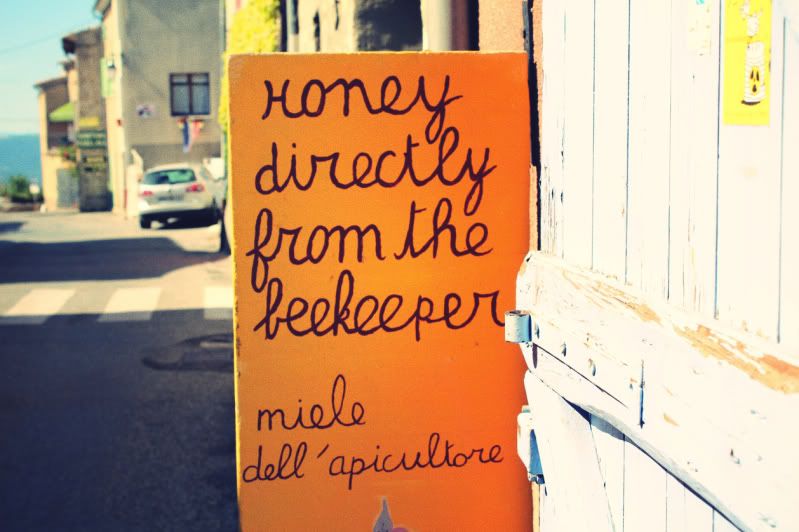 Honey
directly
from the
beekeeper
miele
dell'apicultore